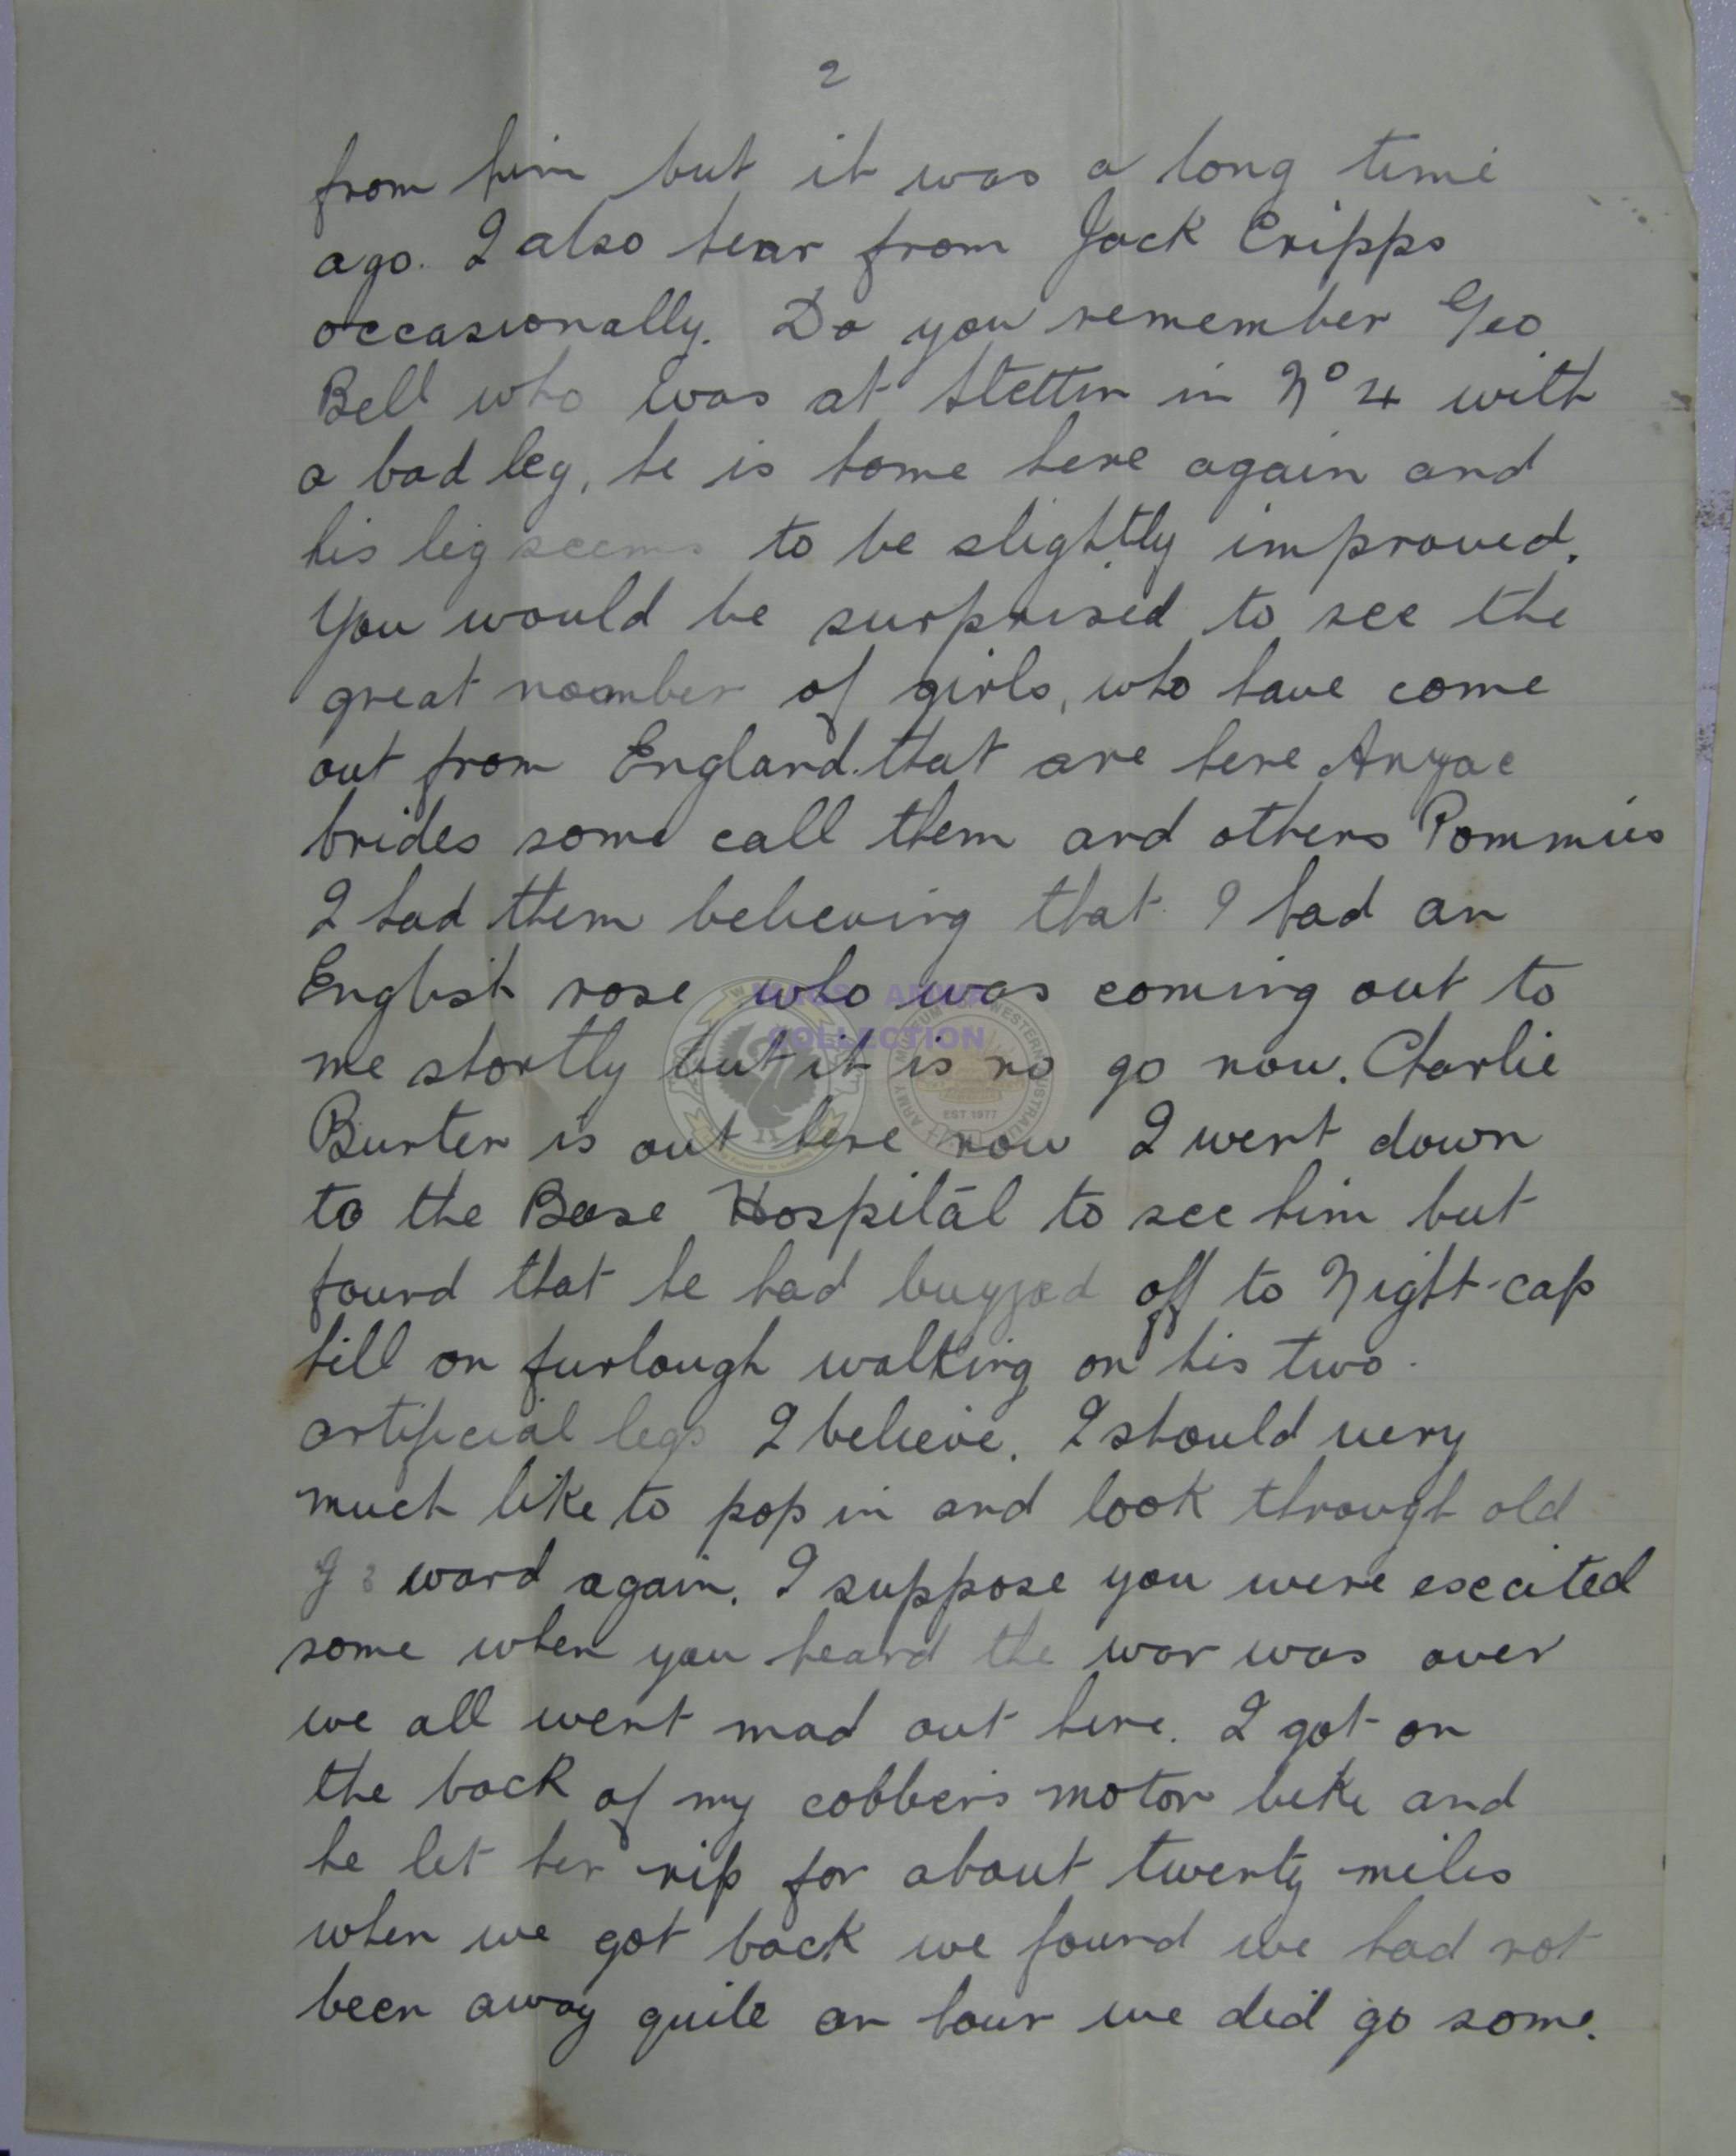 2
from him but it was a long time
ago. I also hear from Jack Cripps
occasionally. Do you remember Geo
Bell who was at Stettin in No 4 with
a bad leg, he is home here again and
his leg seems to be slightly improved.
You would be surprised to see the
great noomber of girls, who have come
out from England that are here Anzac
brides some call them and others Pommies
I had them believing that I had an
English rose who was coming out to
me shortly but it is no go now. Charlie
Burter is out here now I went down
to the Base Hospital to see him but
found that he had buzzed off to Night-cap
hill on furlough walking on his two
artificial legs I believe. I should very
much like to pop in and look through old
ward again. I suppose you were excited
some when you heard the war was over
we all went mad out here. I got on
the back of my cobbers motor bike and
he let her rip for about twenty miles
when we got back we found we had not
been away quite an hour we did go some.
COLLECTION
EST 1977